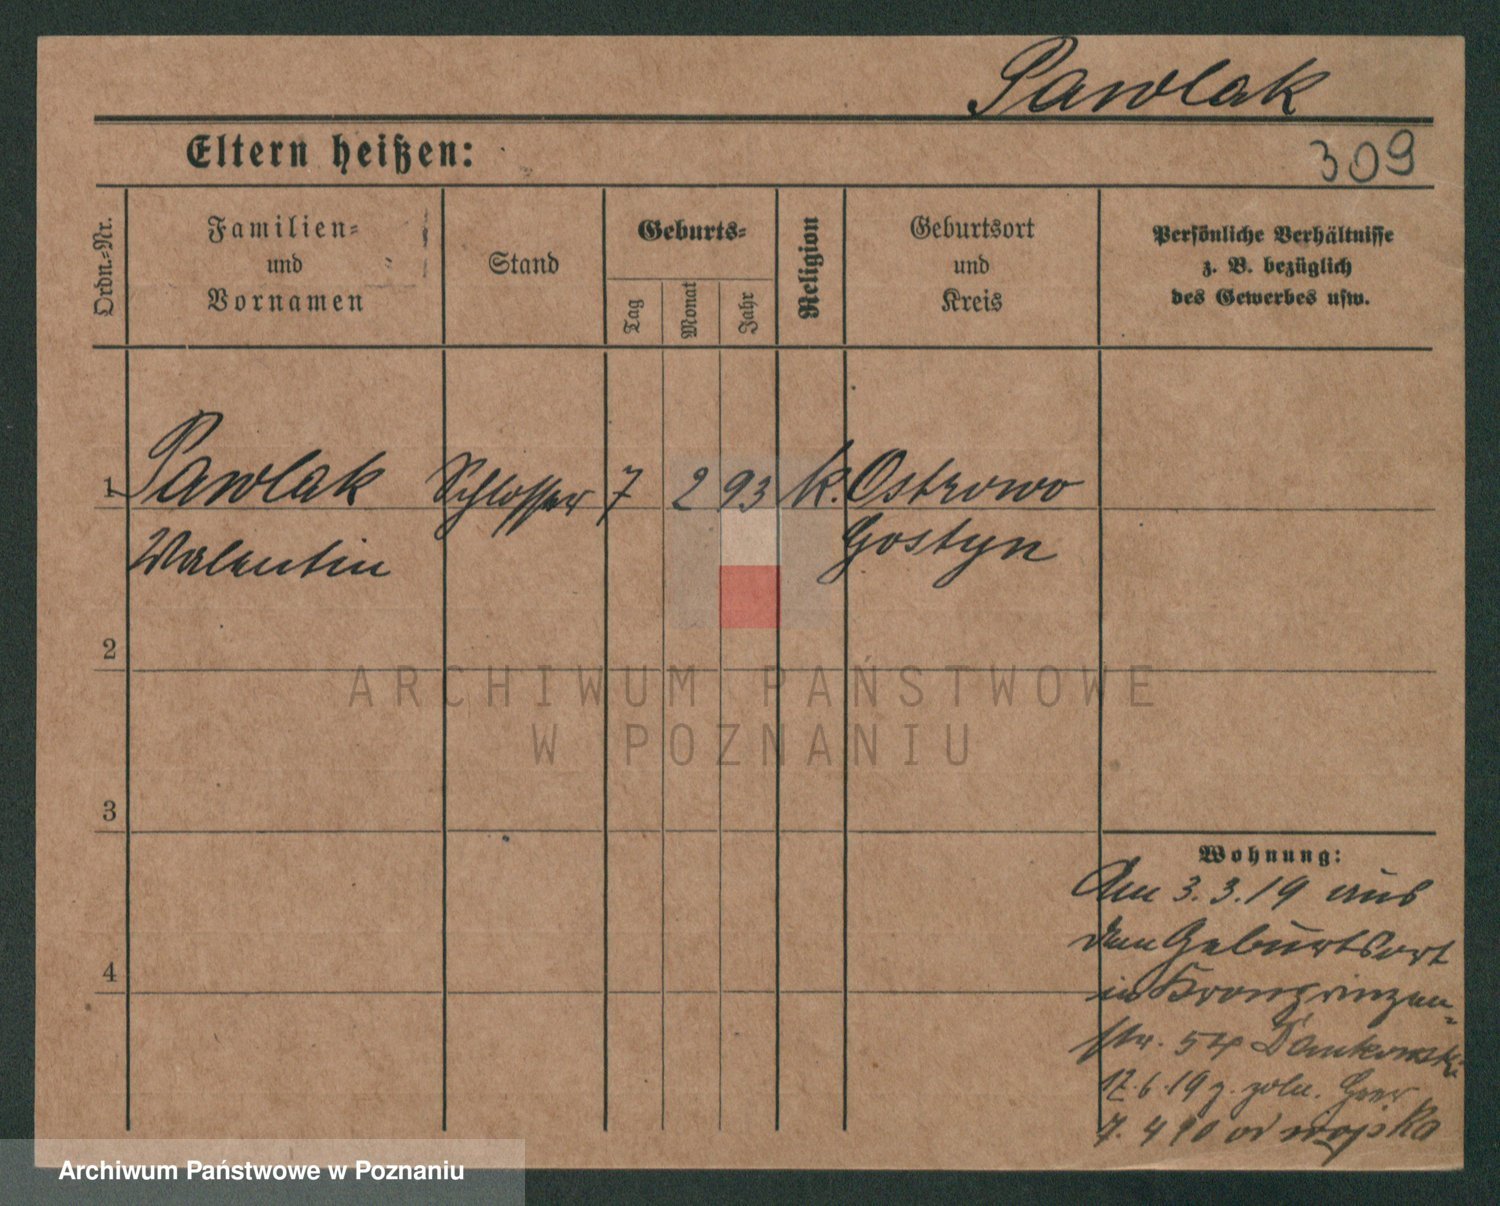 Pawlak
Eltern heißen:
309
Ordn.-Nr.
Familien-
und
Vornamen
Stand
Geburts-
Tag
Monat
Jahr
Religion
Geburtsort
und
Kreis
Persönliche Verhältnisse
z. B. bezüglich
des Gewerbes usw.
1 Pawlak Schlosser 7 2 93 k. Ostrowo
Valentin Gostyn
2
ARCHIWUM PAŃSTWOWE
W POZNANIU
3
Wohnung:
Am 3.3.19 aus
dem Geburtsort
4
in Kronprinzen-
str. 54 Dankowski
12.6.19 z. poln. Heer
7. 4 20 od wojska
Archiwum Państwowe w Poznaniu